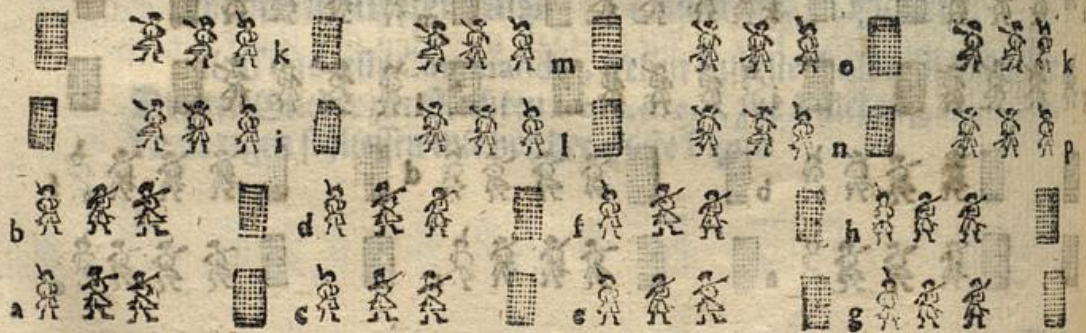 k m o k
i l n p
b d f h
a c e g